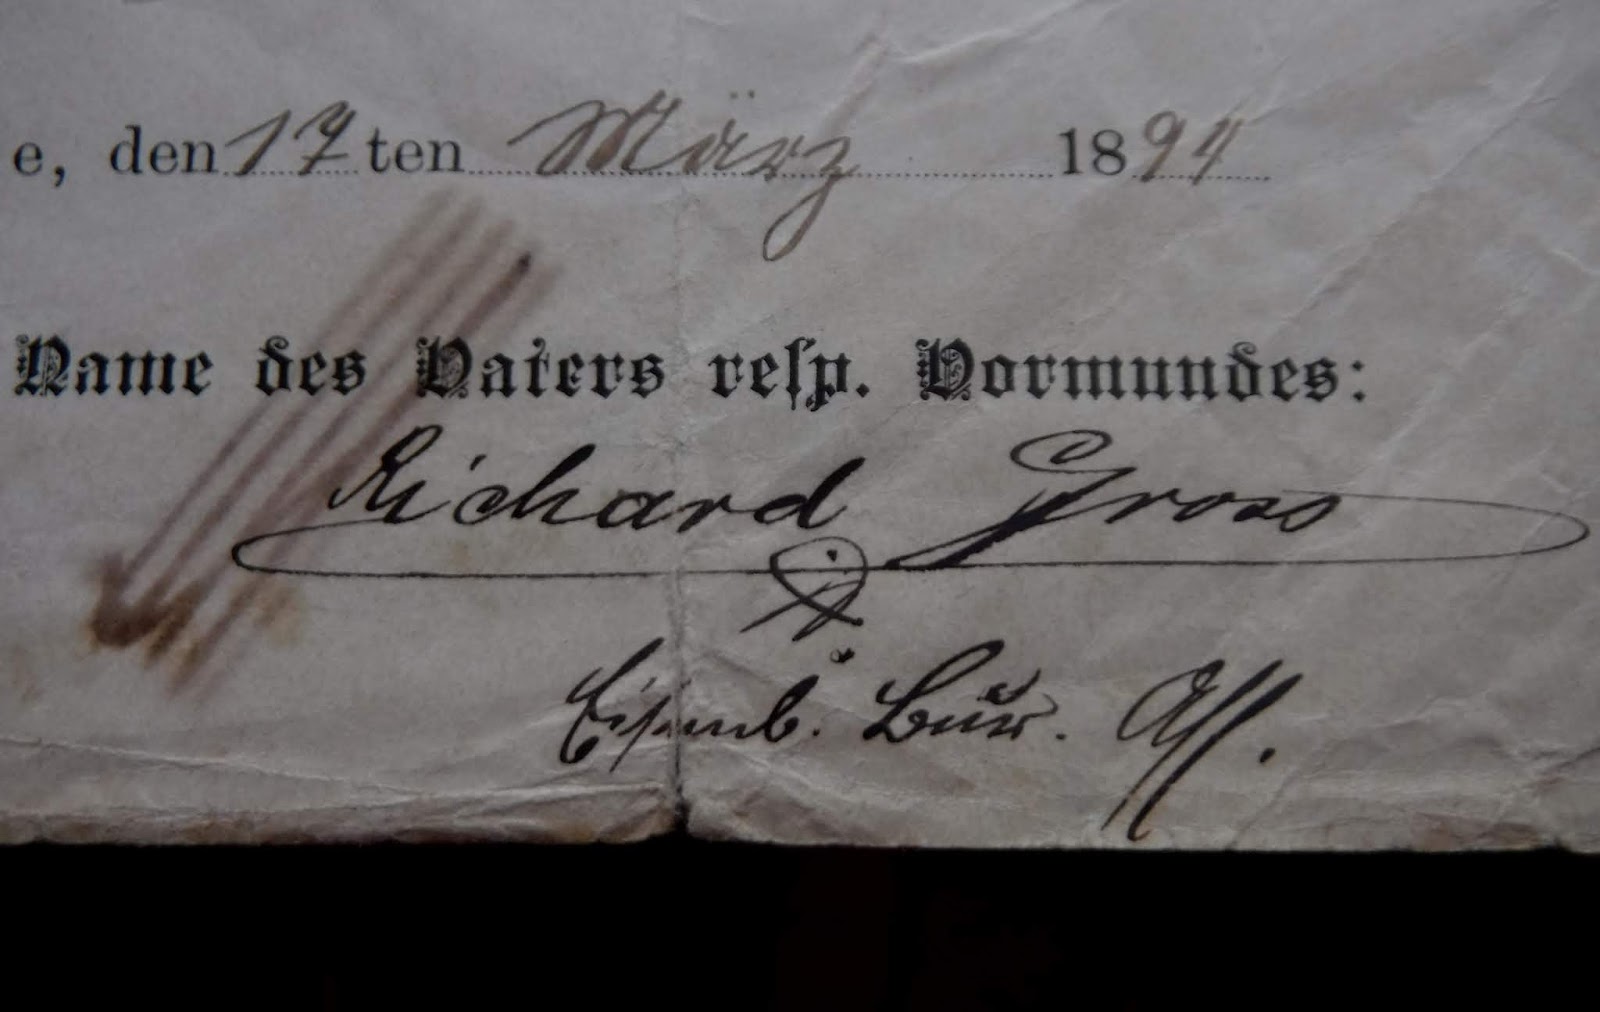 e, den 17ten März 1894
Name des Vaters resp. Vormundes:
Richard Gross
Eisenb. Bür. Ass.